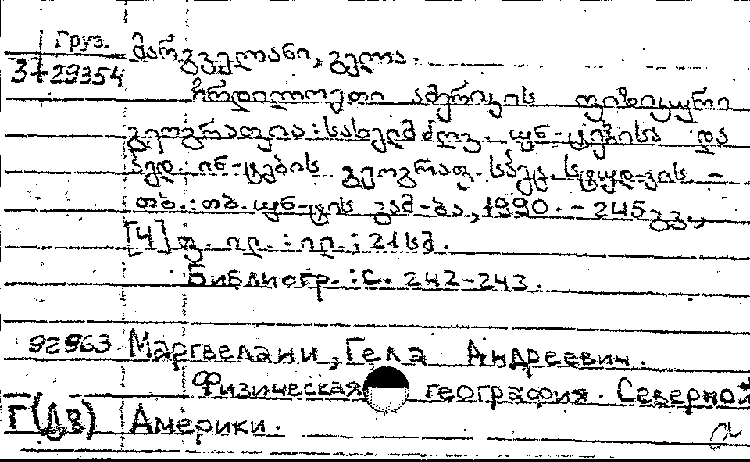 Груз. მარგველანი, გელა.
3+29354
ჩრდილოეთი ამერიკის ფიზიკური
გეოგრაფია: სახელმძღვ. უნ-ტებისა და
პედ. ინ-ტების გეოგრაფ. სპეც. სტუდ-ვის -
თბ.: თბ. უნ-ტის გამ-ბა, 1990. - 245 გვ.,
[4] ფ. ილ. : ილ.; 21 სმ.
Библиогр.: С. 242-243.
92963 Маргвелани, Гела Андреевич.
Физическая география Северной
Г(Д8) Америки.